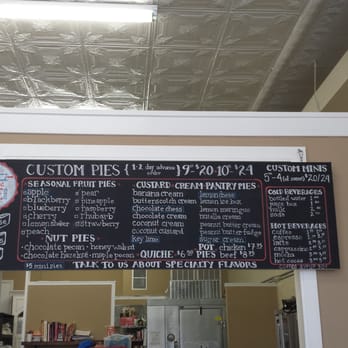 CUSTOM PIES { 1-2 day advance order } 9"-$20-10"-$24
SEASONAL FRUIT PIES
apple
pear
blackberry
pineapple
blueberry
raspberry
cherry
rhubarb
lemon
strawberry
peach
NUT PIES
chocolate pecan · honey walnut
chocolate hazelnut · maple pecan
CUSTARD·CREAM·PANTRY PIES
banana cream
lemon chess
butterscotch cream
lemon ice box
chocolate chess
lemon meringue
chocolate cream
nutella cream
coconut cream
peanut butter cream
coconut custard
peanut butter fudge
key lime
sugar cream
QUICHE
POT PIES
chicken $7.75
beef
TALK TO US ABOUT SPECIALTY FLAVORS
CUSTOM MINIS
5"-4 $20/24
COLD BEVERAGES
bottled water
milk
soda
HOT BEVERAGES
coffee
espresso
latte
cappuccino
mocha
hot cocoa